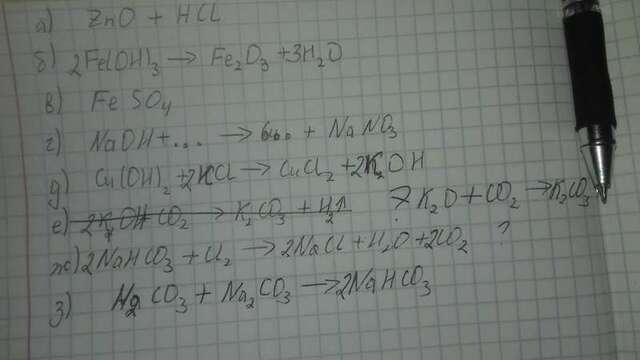 а) ZnO + HCl
б) 2Fe(OH)₃ → Fe₂O₃ + 3H₂O
в) FeSO₄
г) NaOH + ... → ... + NaNO₃
д) Cu(OH)₂ + 2KCl → CuCl₂ + 2K₂OH
е) 2K OH CO₂ → K₂CO₃ + H₂↑ K₂O + CO₂ → K₂CO₃
ж) 2NaHCO₃ + Cl₂ → 2NaCl + H₂O + 2CO₂ ?
з) H₂CO₃ + Na₂CO₃ → 2NaHCO₃